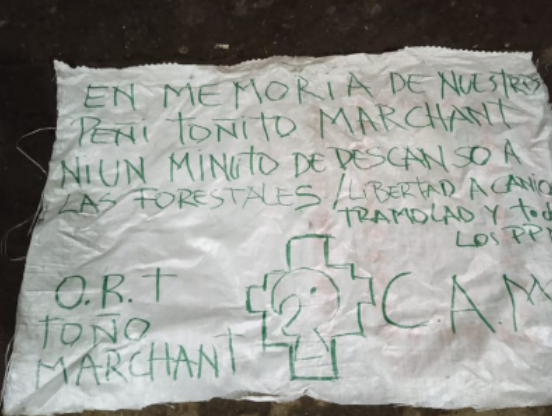 EN MEMORIA DE NUESTRO
PEÑI TOÑITO MARCHANT
NI UN MINUTO DE DESCANSO A
LAS FORESTALES / LIBERTAD A CANIO
TRAMOLAO Y TOD
LOS PP
O.R.T
TOÑO
MARCHANT
C.A.M